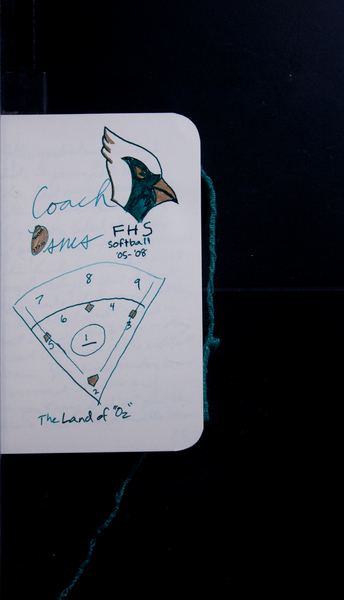 Coach
FHS
Softball
'05-'08
7 8 9
6 4
5 1 3
2
The Land of "Oz"